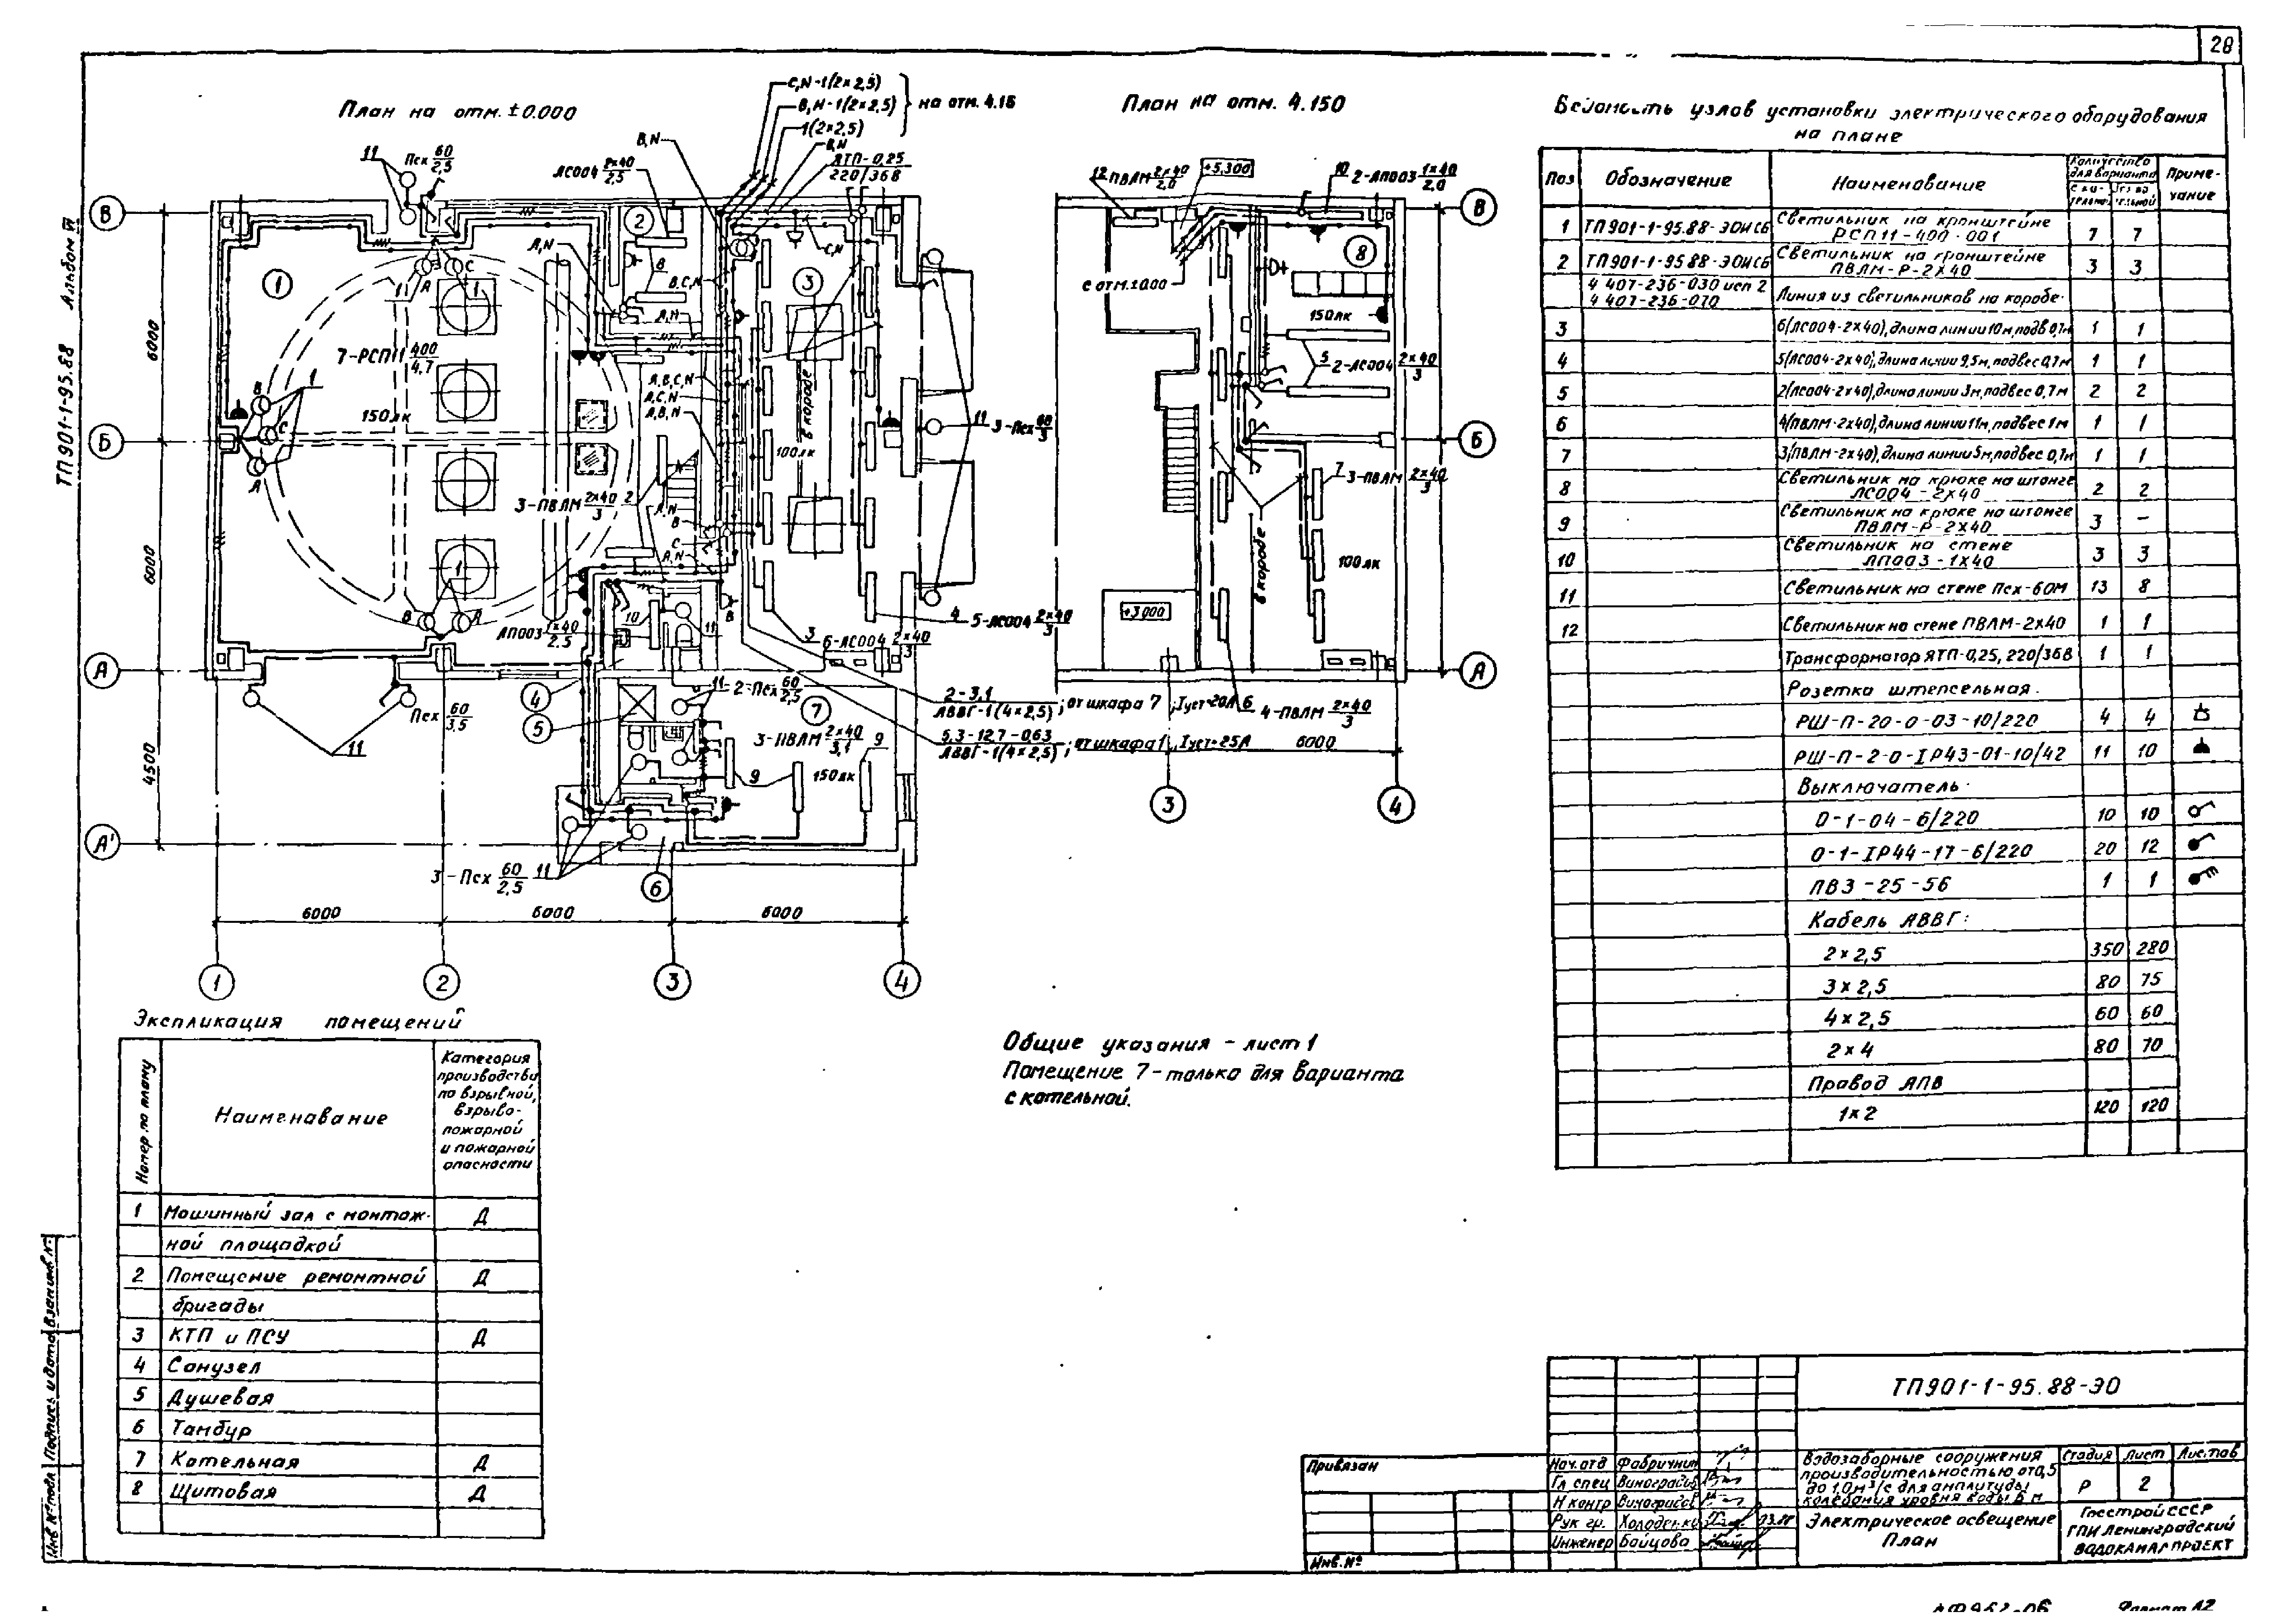 28
ТП901-1-95.88 Альбом VI
План на отм. ±0.000
C,N-1(2×2,5)
B,N-1(2×2,5)
1(2×2,5)
на отм. 4.15
B,N
B,N
ЯТП-0,25
220/36В
11
Псх 60/2,5
ЛС004 2×40/2,5
В
2
A,N
8
C,N
B,C,N
3
1
A
C
1
1
A,N
7-РСП11 400/4,7
150лк
A,B,C,N
A,C,N
A,B,N
в коробе
100лк
B
1
C
A
Б
11 3-Псх 60/3
3-ПВЛМ 2×40/3 2
A,N
B
C
A,N
1
B
A
10
11
B
ЛП003 1×40/2,5
3
6-ЛС004 2×40/3
4
5-ЛС004 2×40/3
А
4
5
11 2-Псх 60/2,5
7
Псх 60/3,5
11
3-ПВЛМ 2×40/3,1 9
9
150лк
2-3,1
АВВГ-1(4×2,5) ; от шкафа 7 ; Iуст=20А
5,3-12,7-0,63
АВВГ-1(4×2,5) ; от шкафа 1 , Iуст=25А
А'
3-Псх 60/2,5 11
6
6000
6000
4500
6000
6000
6000
1
2
3
4
План на отм. 4.150
12 ПВЛМ 2×40/2,0
+5,300
10 2-ЛП003 1×40/2,0
В
8
с отм. ±0.00
150лк
5 2-ЛС004 2×40/3
Б
7 3-ПВЛМ 2×40/3
в коробе
100лк
+3,000
А
6 4-ПВЛМ 2×40/3
6000
3
4
Ведомость узлов установки электрического оборудования
на плане
Поз Обозначение Наименование Количество для варианта Примечание
с котельной без котельной
1 ТП901-1-95.88-ЭОИСБ Светильник на кронштейне
РСП11-400-001 7 7
2 ТП901-1-95.88-ЭОИСБ Светильник на кронштейне
ПВЛМ-Р-2×40 3 3
4 407-236-030 исп 2
4 407-236-070 Линия из светильников на коробе
3 6(ЛС004-2×40), длина линии 10м, подв 0,7м 1 1
4 5(ЛС004-2×40), длина линии 9,5м, подвес 0,7м 1 1
5 2(ЛС004-2×40), длина линии 3м, подвес 0,7м 2 2
6 4(ПВЛМ-2×40), длина линии 11м, подвес 1м 1 1
7 3(ПВЛМ-2×40), длина линии 5м, подвес 0,7м 1 1
8 Светильник на крюке на штанге
ЛС004-2×40 2 2
9 Светильник на крюке на штанге
ПВЛМ-Р-2×40 3 –
10 Светильник на стене
ЛП003-1×40 3 3
11 Светильник на стене Псх-60М 13 8
12 Светильник на стене ПВЛМ-2×40 1 1
Трансформатор ЯТП-0,25, 220/36В 1 1
Розетка штепсельная
РШ-П-20-0-03-10/220 4 4
РШ-П-2-0-IP43-01-10/42 11 10
Выключатель
0-1-04-6/220 10 10
0-1-IP44-17-6/220 20 12
ПВ3-25-56 1 1
Кабель АВВГ:
2×2,5 350 280
3×2,5 80 75
4×2,5 60 60
2×4 80 70
Провод АПВ
1×2 120 120
Экспликация помещений
Номер по плану Наименование Категория
производства
по взрывной,
взрыво-
пожарной
и пожарной
опасности
1 Машинный зал с монтаж- Д
ной площадкой
2 Помещение ремонтной Д
бригады
3 КТП и ПСУ Д
4 Санузел
5 Душевая
6 Тамбур
7 Котельная Д
8 Щитовая Д
Общие указания - лист 1
Помещение 7-только для варианта
с котельной.
Инв № подл Подпись и дата Взам инв №
ТП901-1-95.88-ЭО
Привязан
Инв. №
Нач. отд Фабричнин
Гл спец Виноградов
Н контр Виноградов
Рук гр. Холоденко 03.88
Инженер Байцова
Водозаборные сооружения
производительностью от 0,5
до 1,0 м³/с для амплитуды
колебания уровня воды 6 м
Стадия Лист Листов
Р 2
Электрическое освещение
План
Госстрой СССР
ГПИ Ленинградский
ВОДОКАНАЛПРОЕКТ
Формат А2